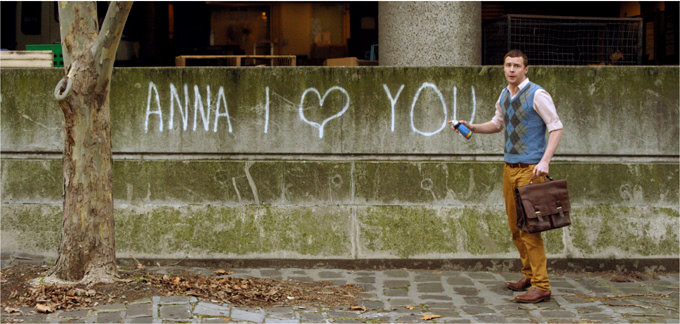 ANNA I ♡ YOU